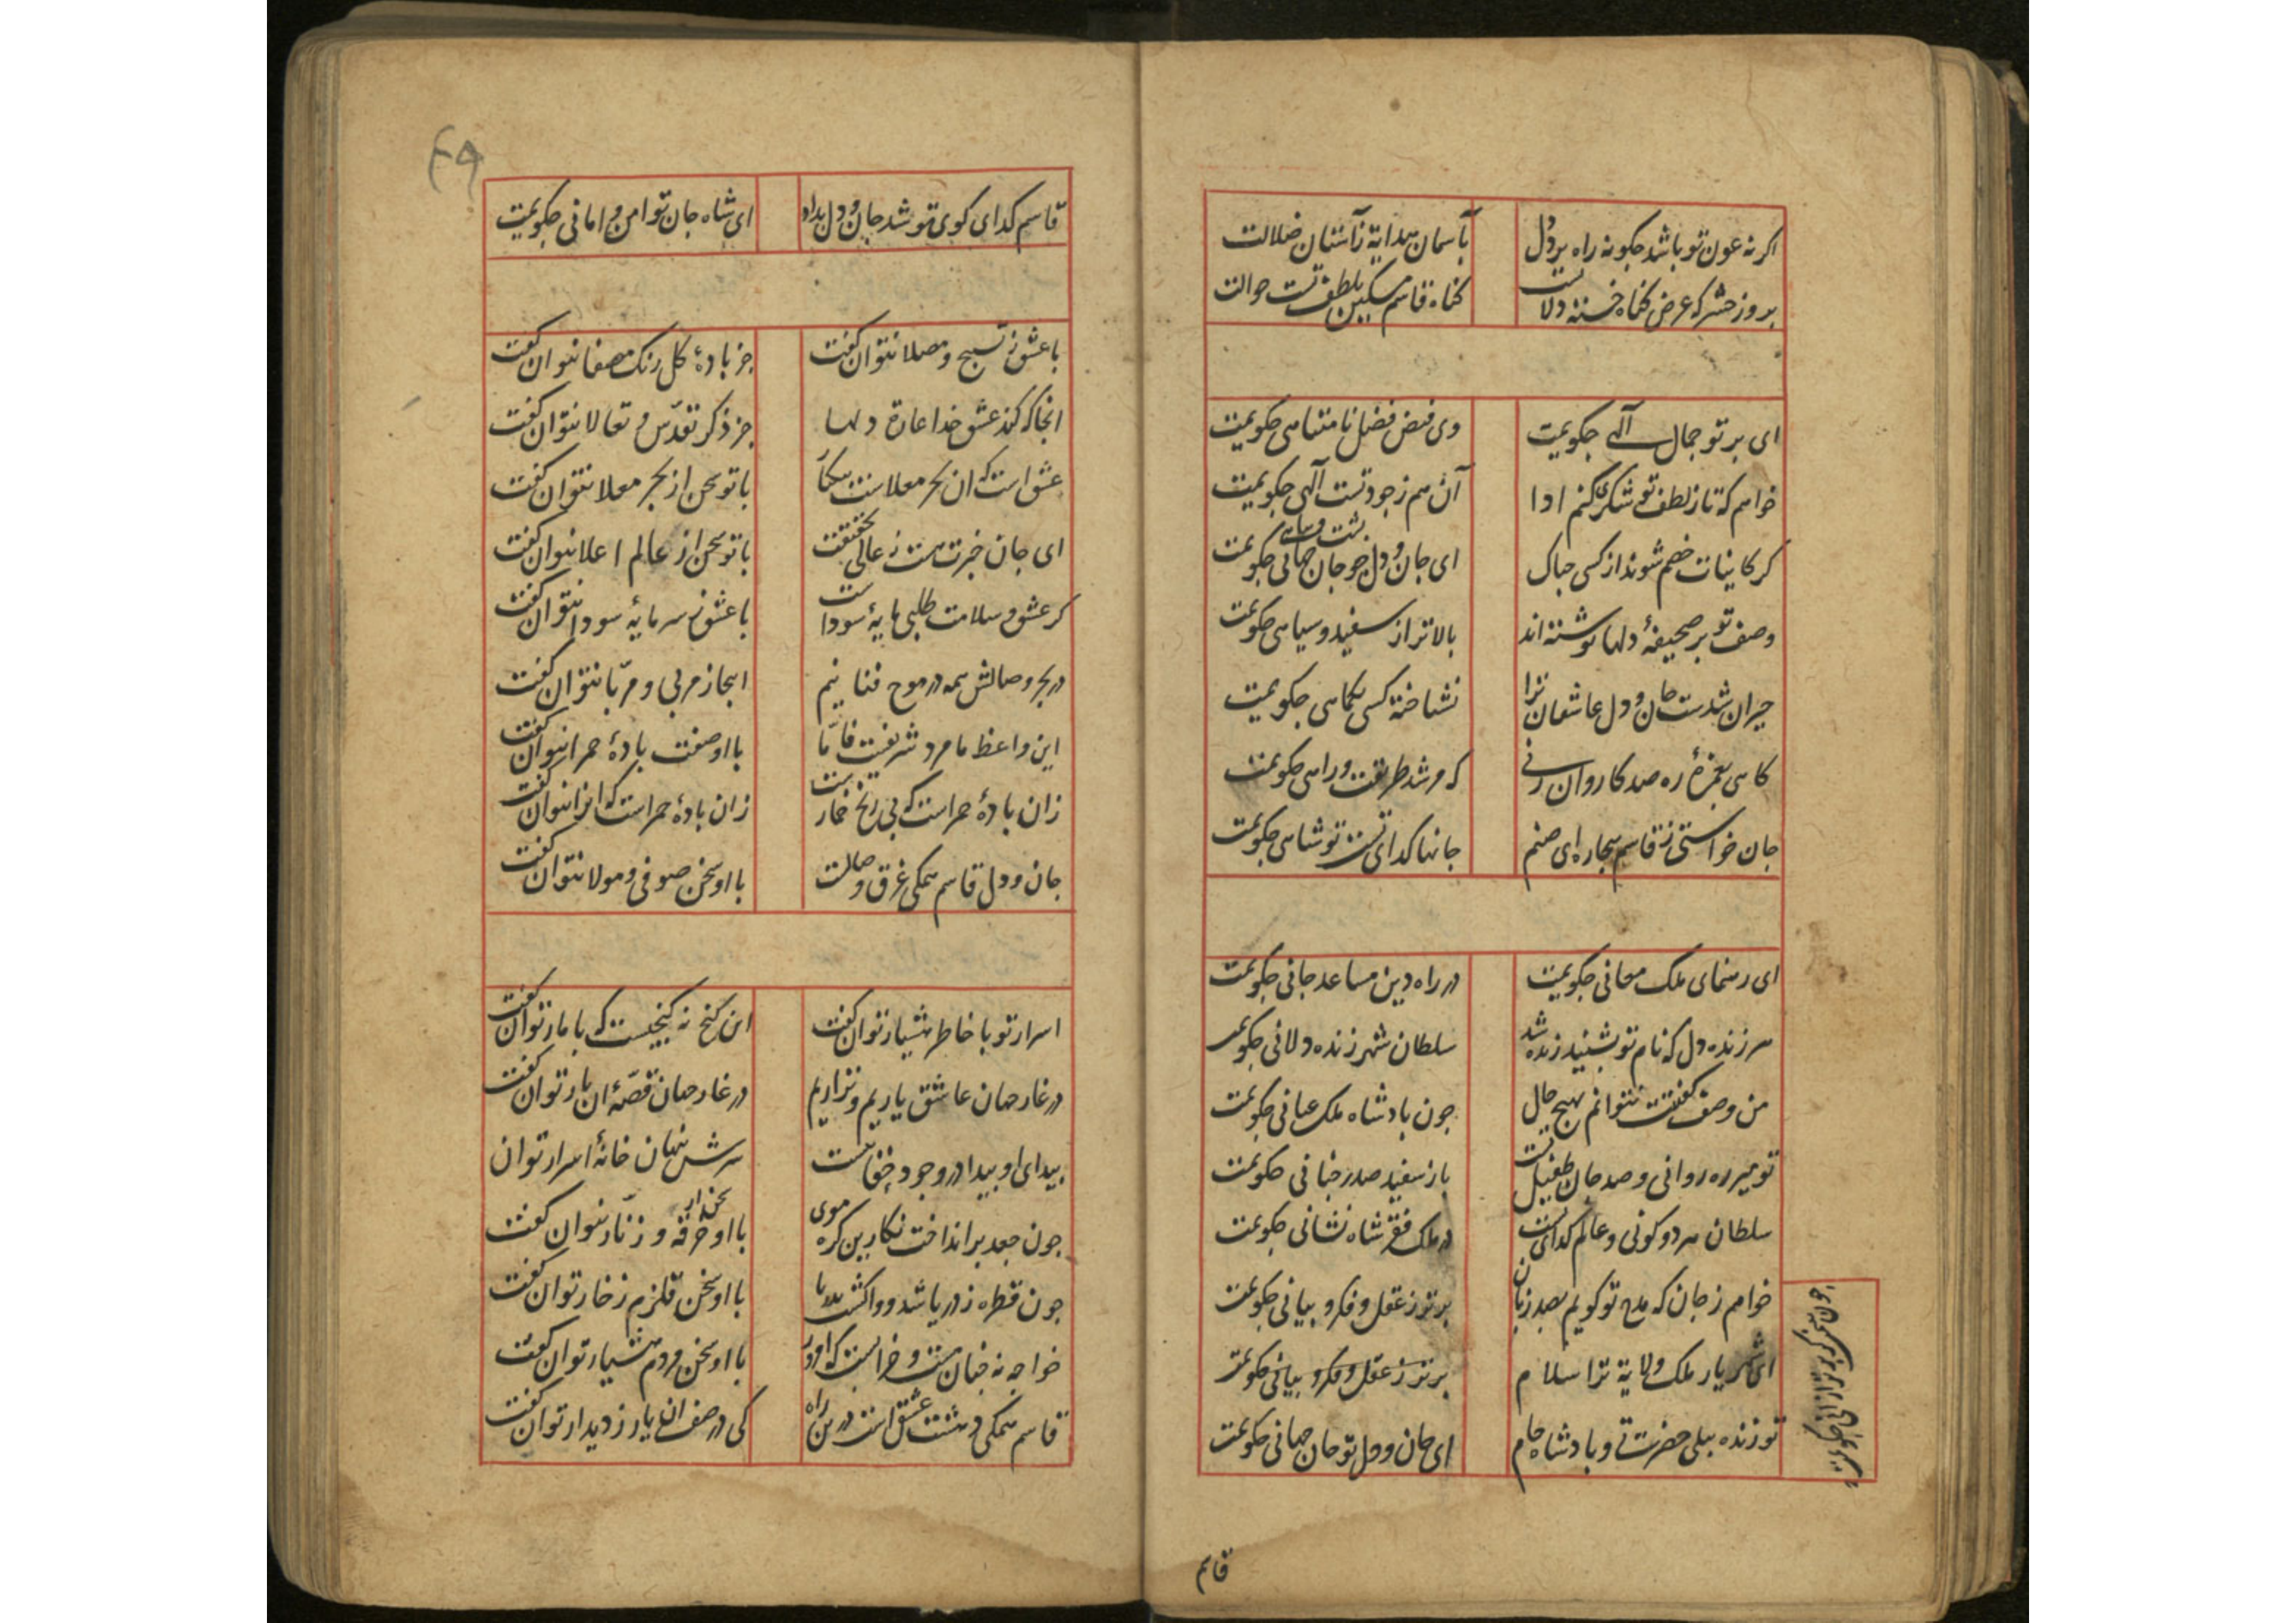 اکر نه عون تو باشد جکونه راه برد دل
بآسمان هدایة زآستان ضلالت
بروز حشر که عرض کناه خسته دلانست
کناه قاسم مسکین بلطف تست حوالت
ای برتو جمال آلهی جکویمت
وی فیض فضل نامتناهی جکویمت
خواهم که تا ز لطف تو شکری کنم ادا
آن هم ز جود تست آلهی جکویمت
کر کاینات خصم شوند از کسی جباک
ای جان و دل جو جان جهانی جکویمت
پشت و پناهی
وصف تو بر صحیفهٔ دلها نوشته اند
بالاتر از سفید و سیاهی جکویمت
حیران شدست جان و دل عاشقان ترا
نشناخته کسی بکماهی جکویمت
کاهی بغمزهٔ ره صد کاروان زنی
که مرشد طریقت و راهی جکویمت
جان خواستی ز قاسم بیجاره ای صنم
جانها کدای تست تو شاهی جکویمت
ای رهنمای ملک معانی جکویمت
در راه دین مساعد جانی جکویمت
هر زنده دل که نام تو بشنید زنده شد
سلطان شهر زنده دلانی جکویمت
من وصف کفتنت نتوانم بهیج حال
جون بادشاه ملک عیانی جکویمت
تو میر ره روانی و صد جان طفیل تست
باز سفید صدر جنانی جکویمت
سلطان هر دو کونی و عالم کدای تست
در ملک فقر شاه نشانی جکویمت
خواهم ز جان که مدح تو کویم بصد زبان
برتر ز عقل و فکر و بیانی جکویمت
ای شهریار ملک ولایة ترا سلام
برتر ز عقل و فکر و بیانی جکویمت
تو زنده بیلی حضرت و بادشاه جام
ای جان و دل تو جان جهانی جکویمت
قاسم
۴۹
قاسم کدای کوی تو شد جان و دل بداد
ای شاه جان تو امن و امانی جکویمت
با عشق ز تسبیح و مصلا نتوان کفت
جز بادهٔ کل رنک مصفا نتوان کفت
انجا که کند عشق خدا غارة دلها
جز ذکر تقدّس و تعالا نتوان کفت
عشق است که ان بحر معلاست بیکبار
با تو سخن از بحر معلا نتوان کفت
ای جان خبرت نیست ز عالی حقیقت
با تو سخن از عالم اعلا نتوان کفت
کر عشق و سلامت طلبی مایهٔ سوداست
با عشق ز سرمایهٔ سودا نتوان کفت
در بحر وصالش همه در موج فناییم
اینجا ز مربی و مربّا نتوان کفت
این واعظ ما مرد شریفست فامّا
با او صفت بادهٔ حمرا نتوان کفت
زان بادهٔ حمراست که بی رنج خمارست
زان بادهٔ حمراست که انرا نتوان کفت
جان و دل قاسم همکی غرق وصالست
با او سخن صوفی و مولا نتوان کفت
اسرار تو با خاطر هشیار توان کفت
این کنج نه کنجیست که با مار توان کفت
در غار جهان عاشق یاریم و نزاریم
در غار جهان قصّهٔ ان یار توان کفت
بیدای او بیدا در وجود خفاییست
سرش نهان خانهٔ اسرار توان
جون جعد برانداخت نکارین کره موی
با او سخن از خرقه و زنّار توان کفت
جون قطره ز دریا شد و واکشت بدریا
با او سخن قلزم زخار توان کفت
خواجه نه جنان مست و خرابست که او را
با او سخن مردم هشیار توان کفت
قاسم همکی دهشت عشق است درین راه
کی در صف ان یار ز دیدار توان کفت